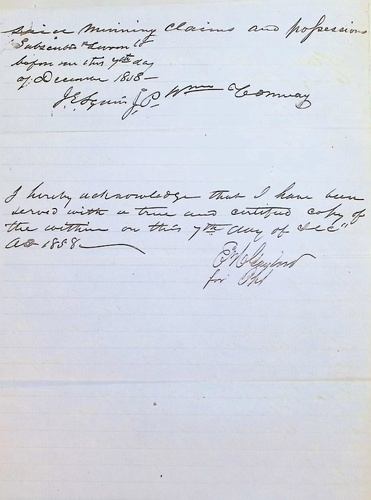 said mining claims and possessions
Subscribed & Sworn to
before me this 7th day
of December 1858
J. E. Squire J.P. Wm Conway
I hereby acknowledge that I have been
served with a true and certified copy of
the within on this 7th day of Dec"
AD 1858
for